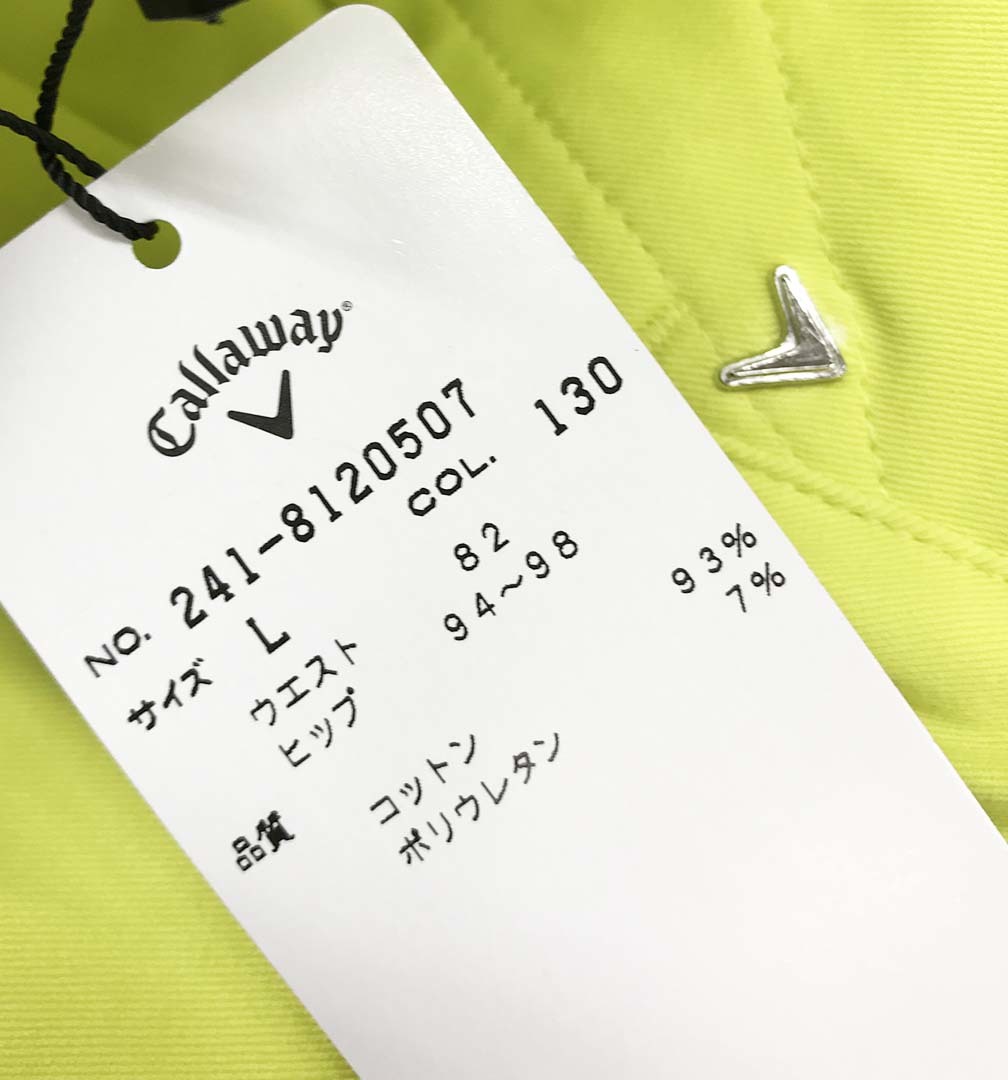 Callaway®
NO. 241-8120507
COL. 130
サイズ L
ウエスト 82
ヒップ 94~98
品質 コットン 93%
ポリウレタン 7%